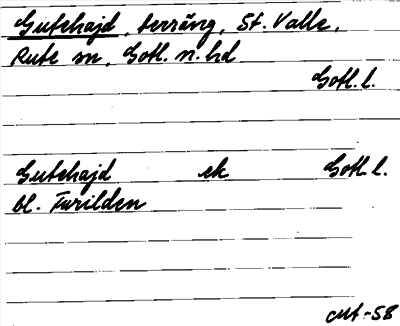 Gutehajd, terräng, St. Valle,
Rute sn, Gotl. n. hd
Gotl. l.
Gutehajd ek Gotl. l.
bl. Furilden
-58